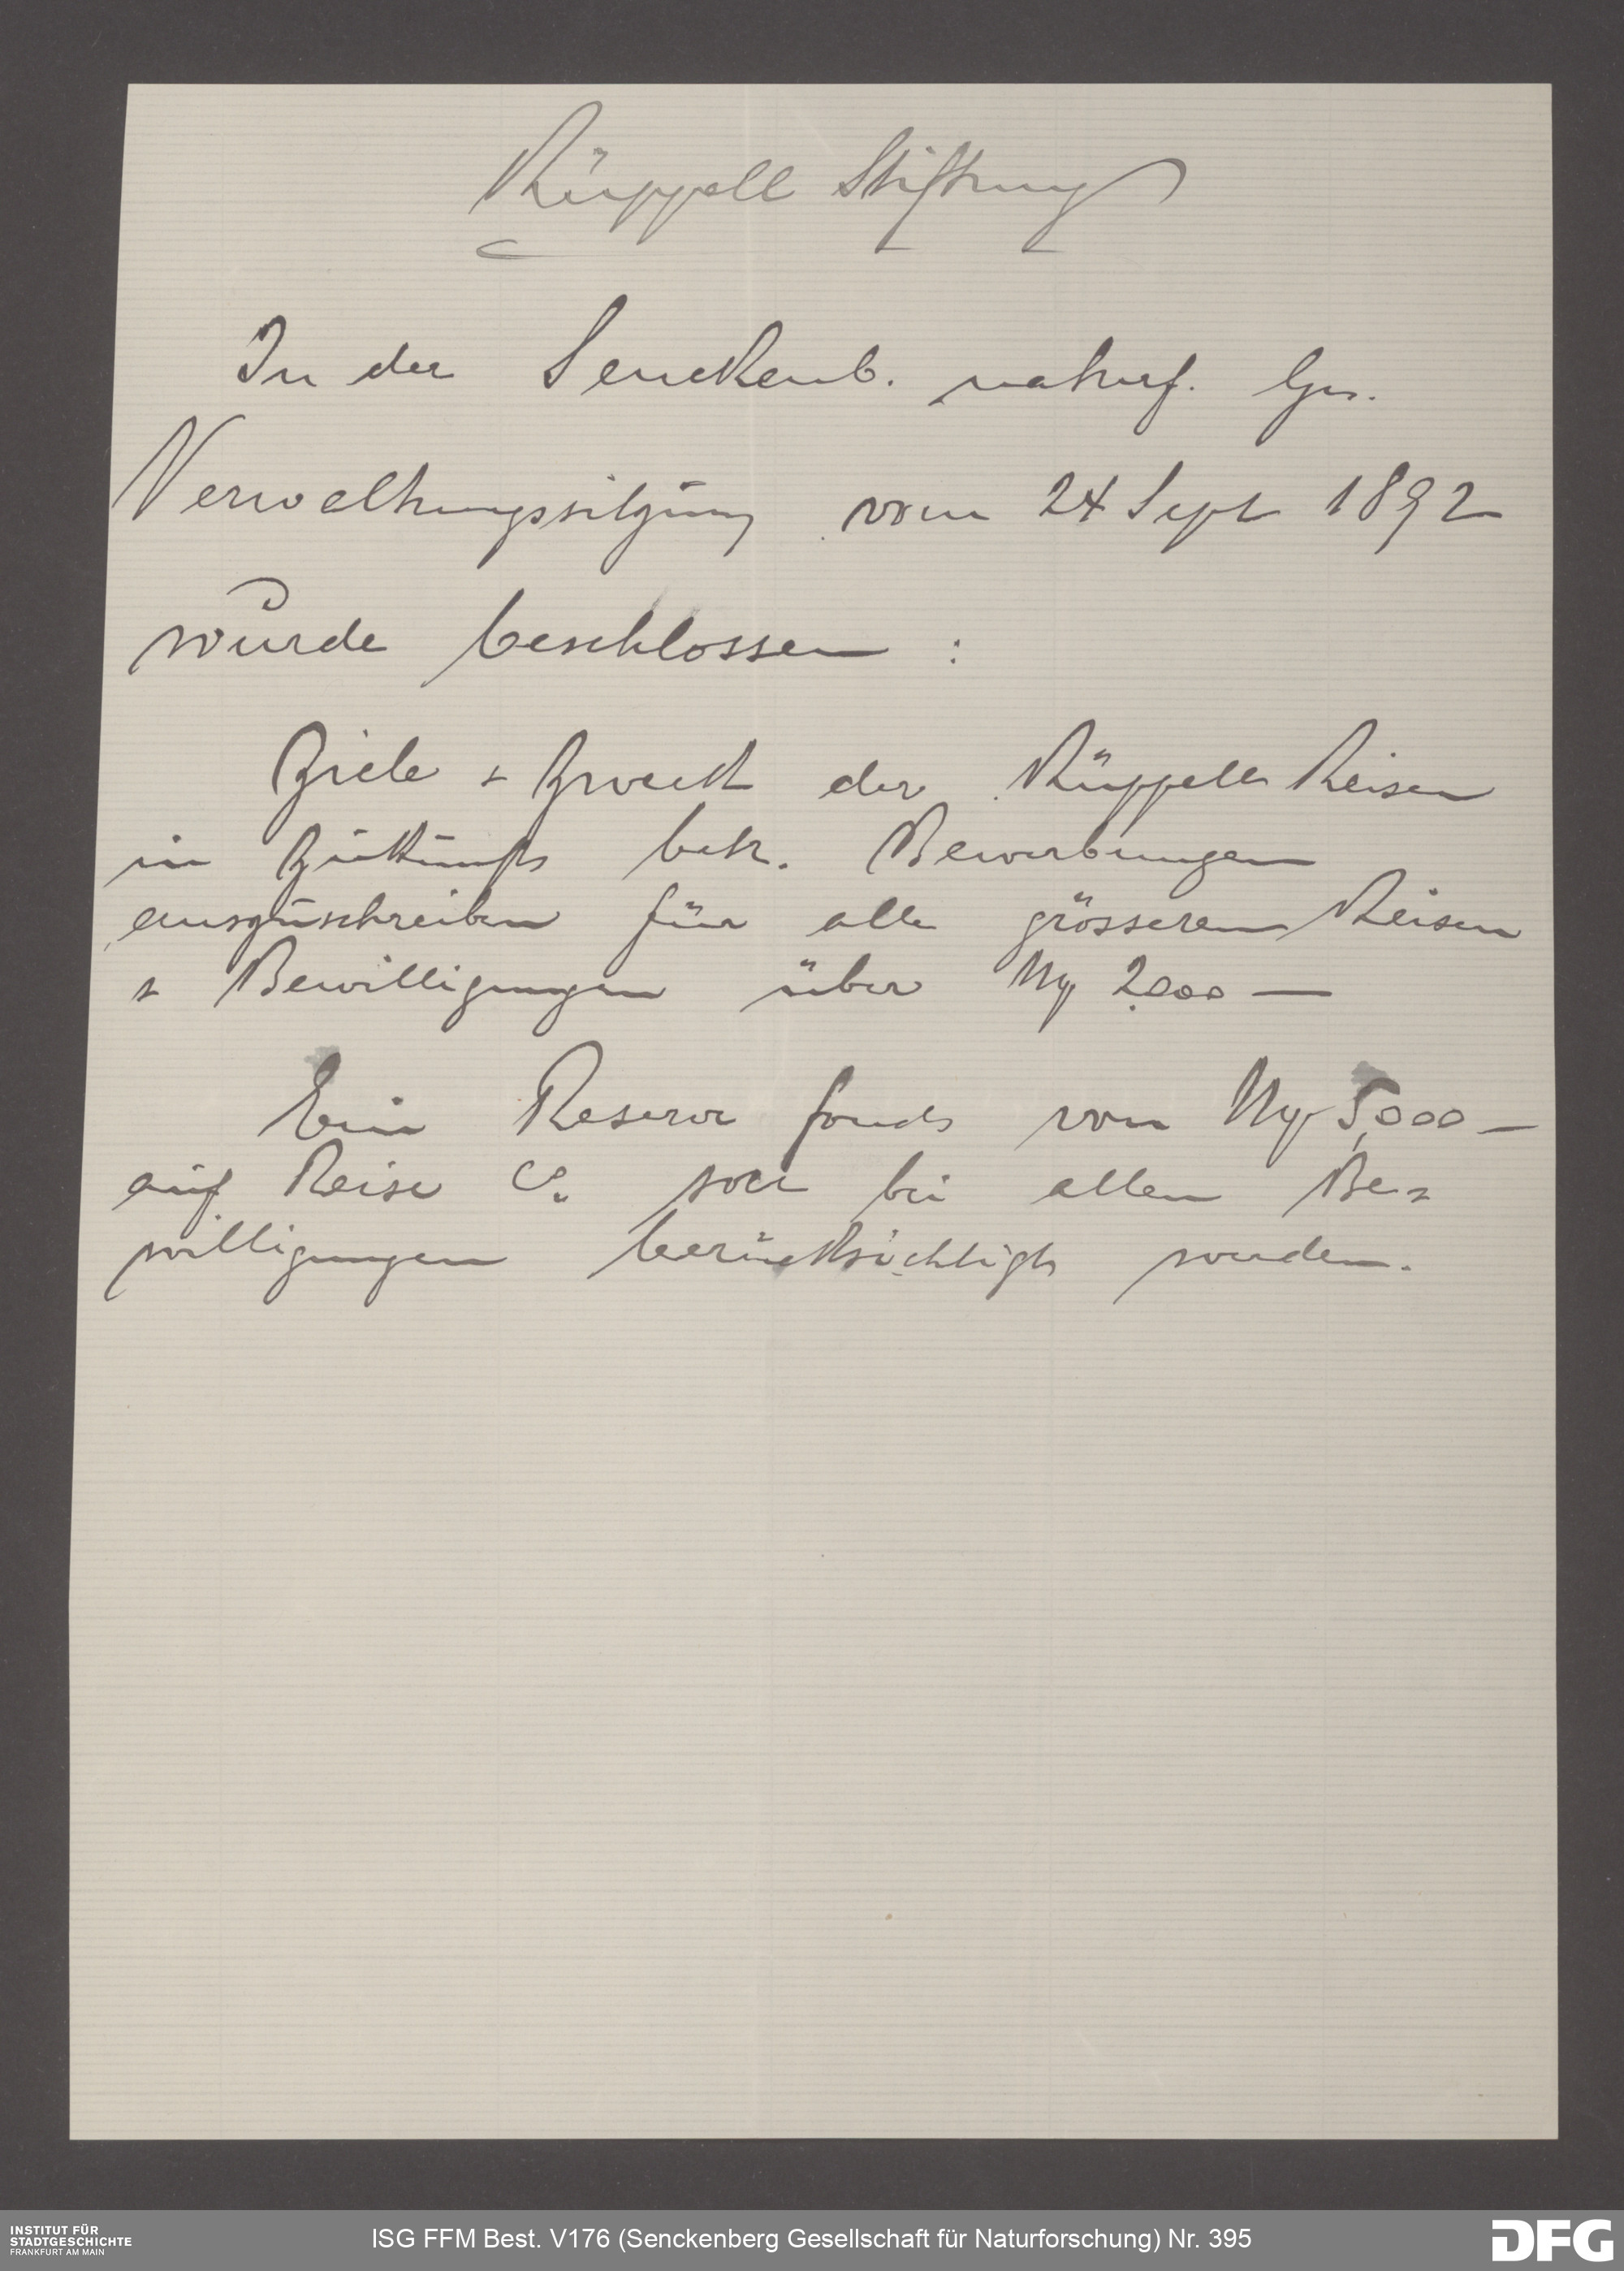 Rüppell Stiftung
In der Senckenb. naturf. Ges.
Verwaltungssitzung vom 24 Sept 1892
wurde beschlossen :
Ziele + Zweck der Rüppell Reisen
in Zukunft betr. Bewerbungen
auszuschreiben für alle grösseren Reisen
+ Bewilligungen über 2000 —
Ein Reserve fonds von 5,000 —
auf Reise Co. soll bei allen Be-
willigungen berücksichtigt werden.
INSTITUT FÜR
STADTGESCHICHTE
FRANKFURT AM MAIN
ISG FFM Best. V176 (Senckenberg Gesellschaft für Naturforschung) Nr. 395
DFG